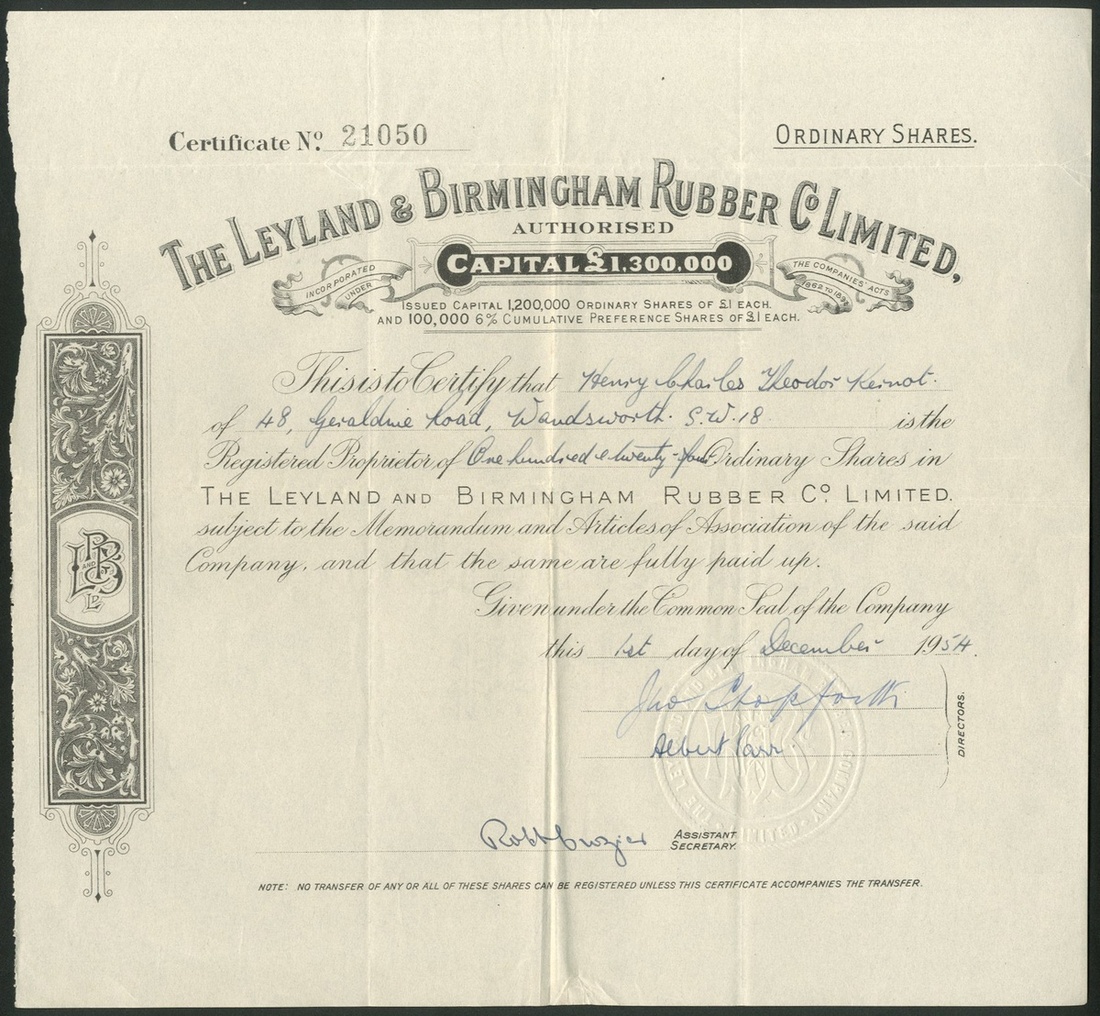 Certificate No. 21050
ORDINARY SHARES.
THE LEYLAND & BIRMINGHAM RUBBER Co LIMITED,
AUTHORISED
CAPITAL £1,300,000
INCORPORATED UNDER
THE COMPANIES' ACTS 1862 TO
ISSUED CAPITAL 1,200,000 ORDINARY SHARES OF £1 EACH.
AND 100,000 6% CUMULATIVE PREFERENCE SHARES OF £1 EACH.
This is to Certify that Henry Charles Theodor Kernot.
of 48, Geraldine Road, Wandsworth. S.W.18 is the
Registered Proprietor of One hundred & twenty-four Ordinary Shares in
THE LEYLAND AND BIRMINGHAM RUBBER Co. LIMITED.
subject to the Memorandum and Articles of Association of the said
Company, and that the same are fully paid up.
Given under the Common Seal of the Company
this 1st day of December 1954.
Albert Carr
DIRECTORS.
Robt Crozier ASSISTANT SECRETARY.
NOTE: NO TRANSFER OF ANY OR ALL OF THESE SHARES CAN BE REGISTERED UNLESS THIS CERTIFICATE ACCOMPANIES THE TRANSFER.